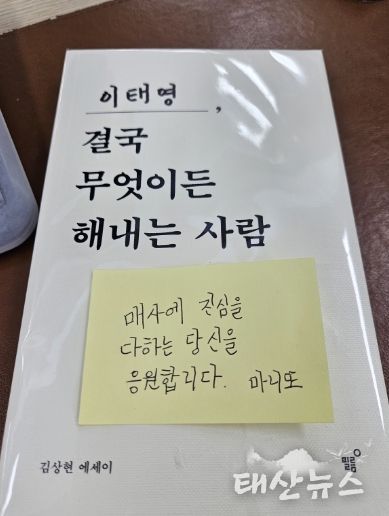 이태영,
결국
무엇이든
해내는 사람
매사에 진심을
다하는 당신을
응원합니다. 마니또
김상현 에세이
필름
태산뉴스